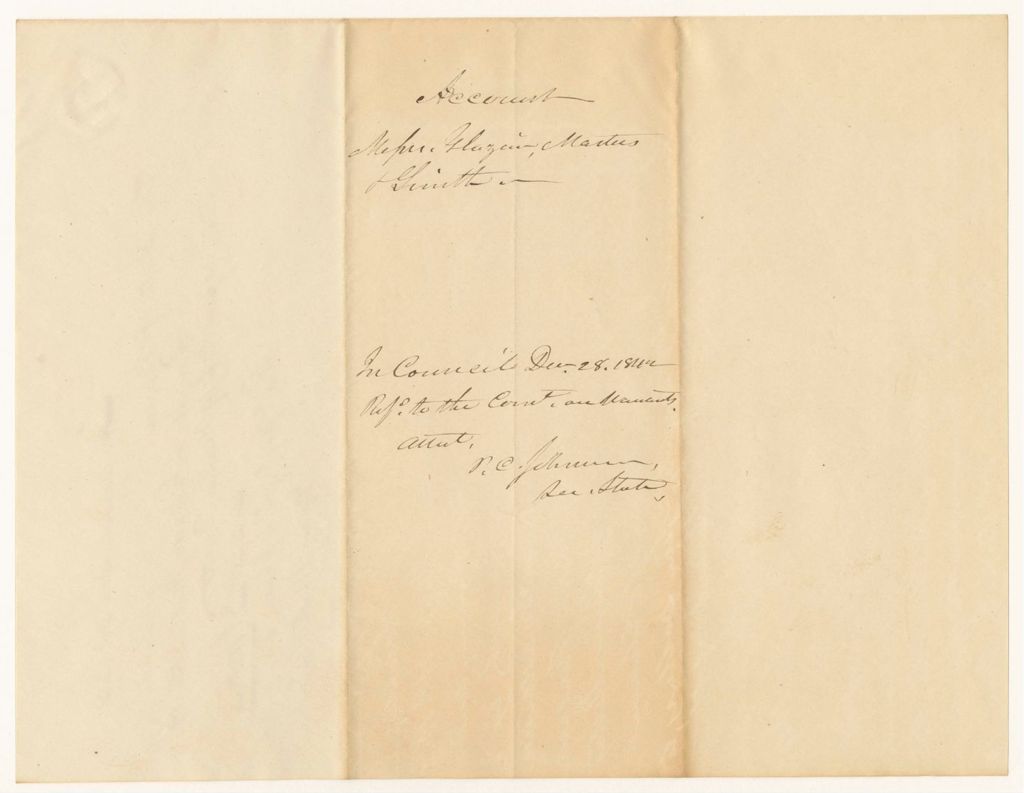 Account
Messrs. Glazier, Masters
& Smith
In Council Dec. 28. 1842
Refd. to the Comt. on Warrants.
attest,
P. C. Johnson,
Sec. State,